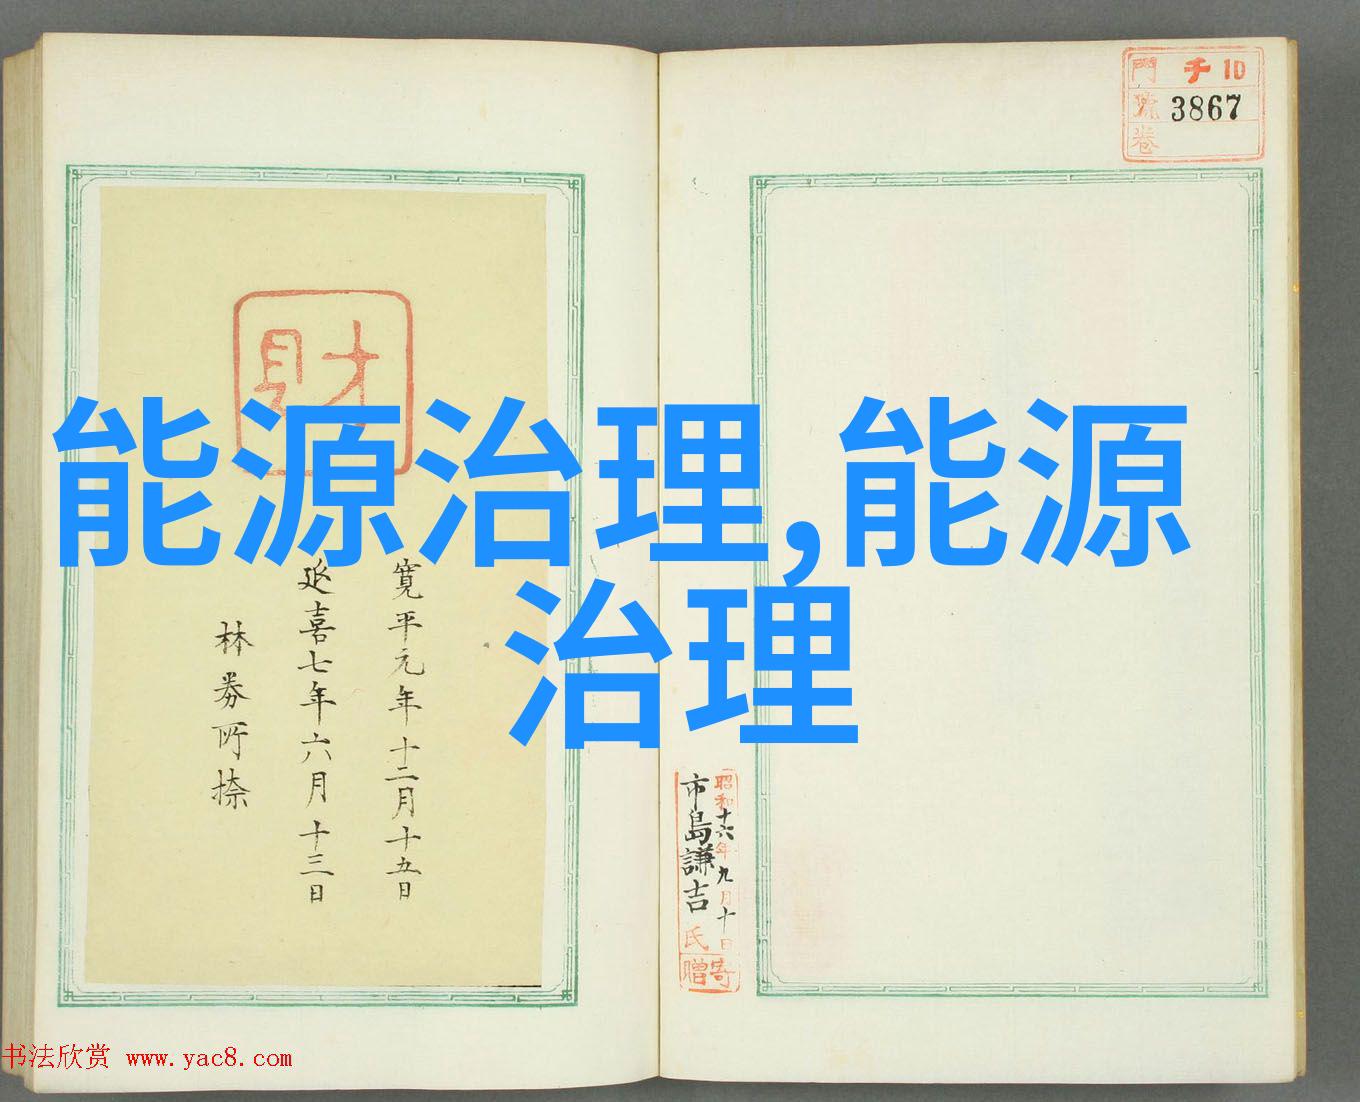 門 千 10
號 3867
卷
財
能源治理,能源
治理
寛平元年十二月十五日
延喜七年六月十三日
林券所捺
昭和十六年九月十日
市島謙吉氏
寄贈
书法欣赏 www.yac8.com